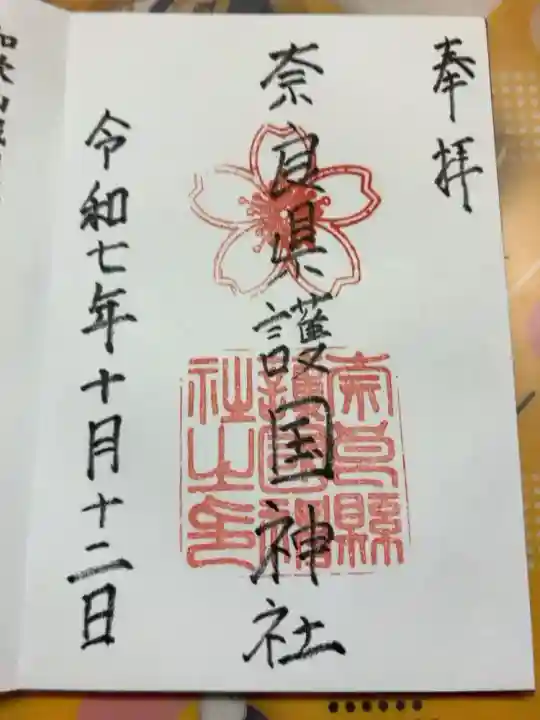 奉拝
奈良県護国神社
奈良縣
護國神
社之印
令和七年十月十二日